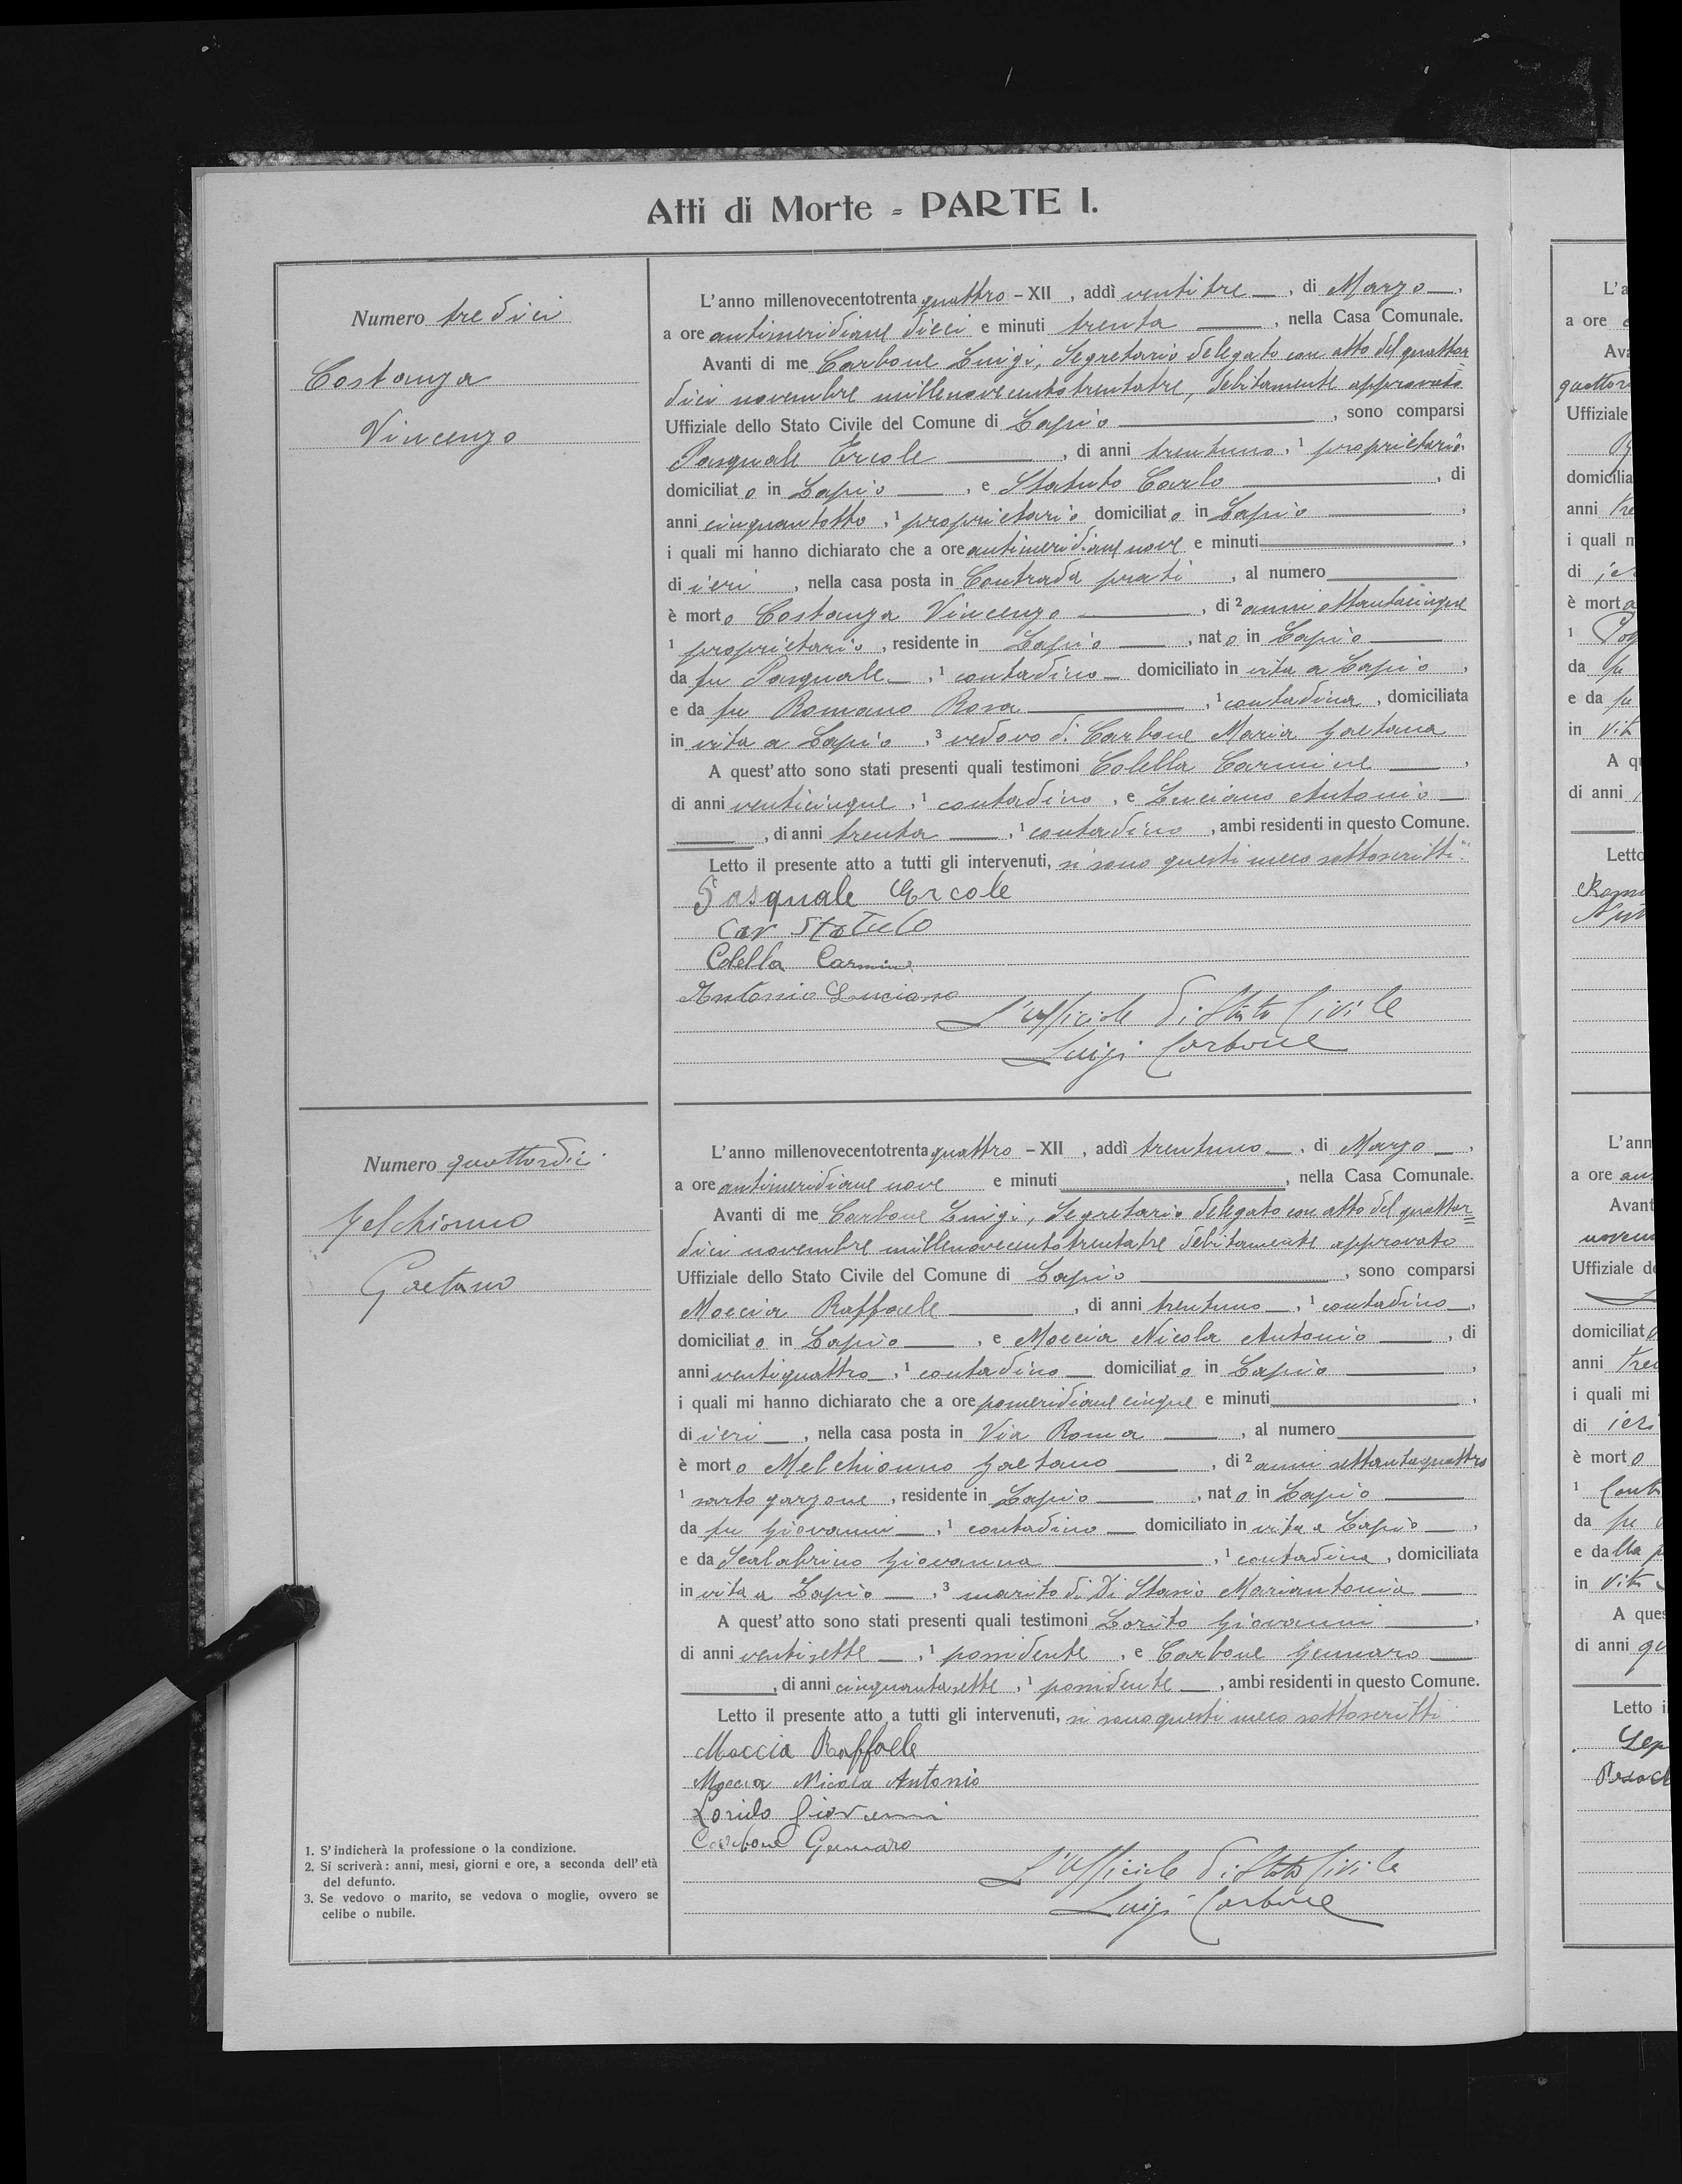 Atti di Morte = PARTE I.
Numero tredici
Costanza
Vincenzo
L'anno millenovecentotrenta quattro – XII , addì ventitre , di Marzo ,
a ore antimeridiane dieci e minuti trenta , nella Casa Comunale.
Avanti di me Carbone Luigi, Segretario delegato con atto del quattor=
dici novembre millenovecentotrentatre, debitamente approvato
Uffiziale dello Stato Civile del Comune di Lapio , sono comparsi
Pasquale Ercole , di anni trentuno, 1 proprietario
domiciliato in Lapio , e Statuto Carlo , di
anni cinquantotto , 1 proprietario domiciliato in Lapio ,
i quali mi hanno dichiarato che a ore antimeridiane nove e minuti ,
di ieri , nella casa posta in Contrada prati , al numero
è morto Costanza Vincenzo , di 2 anni ottantacinque
1 proprietario , residente in Lapio , nato in Lapio
da fu Pasquale , 1 contadino domiciliato in vita a Lapio ,
e da fu Romano Rosa , 1 contadina , domiciliata
in vita a Lapio , 3 vedovo di Carbone Maria Gaetana
A quest'atto sono stati presenti quali testimoni Colella Carmine ,
di anni venticinque , 1 contadino , e Luciano Antonio
, di anni trenta , 1 contadino , ambi residenti in questo Comune.
Letto il presente atto a tutti gli intervenuti, si sono questi meco sottoscritti.
Pasquale Ercole
Car Statuto
Colella Carmine
Antonio Luciano
L'Ufficiale di Stato Civile
Luigi Carbone
Numero quattordici
Melchionno
Gaetano
L'anno millenovecentotrenta quattro – XII , addì trentuno , di Marzo ,
a ore antimeridiane nove e minuti , nella Casa Comunale.
Avanti di me Carbone Luigi, Segretario delegato con atto del quattor=
dici novembre millenovecentotrentatre debitamente approvato
Uffiziale dello Stato Civile del Comune di Lapio , sono comparsi
Moccia Raffaele , di anni trentuno , 1 contadino ,
domiciliato in Lapio , e Moccia Nicola Antonio , di
anni ventiquattro , 1 contadino domiciliato in Lapio ,
i quali mi hanno dichiarato che a ore pomeridiane cinque e minuti ,
di ieri , nella casa posta in Via Roma , al numero
è morto Melchionno Gaetano , di 2 anni settantaquattro
1 sarto garzone , residente in Lapio , nato in Lapio
da fu Giovanni , 1 contadino domiciliato in vita a Lapio ,
e da Scalabrino Giovanna , 1 contadina , domiciliata
in vita a Lapio , 3 marito di Di Stasio Mariantonia
A quest'atto sono stati presenti quali testimoni Lorito Giovanni ,
di anni ventisette , 1 possidente , e Carbone Gennaro
, di anni cinquantasette , 1 possidente , ambi residenti in questo Comune.
Letto il presente atto a tutti gli intervenuti, si sono questi meco sottoscritti.
Moccia Raffaele
Moccia Nicola Antonio
Lorito Giovanni
Carbone Gennaro
L'Ufficiale di Stato Civile
Luigi Carbone
1. S'indicherà la professione o la condizione.
2. Si scriverà : anni, mesi, giorni e ore, a seconda dell'età
del defunto.
3. Se vedovo o marito, se vedova o moglie, ovvero se
celibe o nubile.